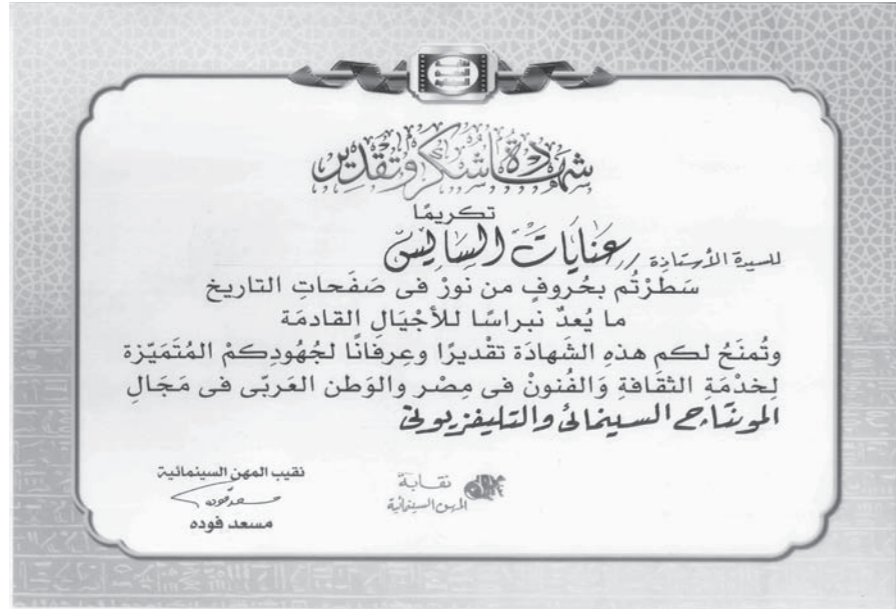 شهادة شكر وتقدير
تكريمًا
للسيدة الأستاذة // عنايات السايس
سَطرْتُم بحُروفٍ من نورْ فى صَفَحاتِ التاريخ
ما يُعدٌ نبراسًا للأجْيَالِ القادمَة
وتُمنَحُ لكم هذهِ الشَهادَة تقْديرًا وعِرفانًا لجُهُودِكمْ المُتَمَيّزة
لِخدْمَةِ الثقَافةِ وَالفُنونْ فى مِصْر والوَطن العَربّى فى مَجَالِ
المونتاج السينمائى والتليفزيونى
نقيب المهن السينمائية
مسعد فوده
مسعد فوده
نقابة
المهن السينمائية